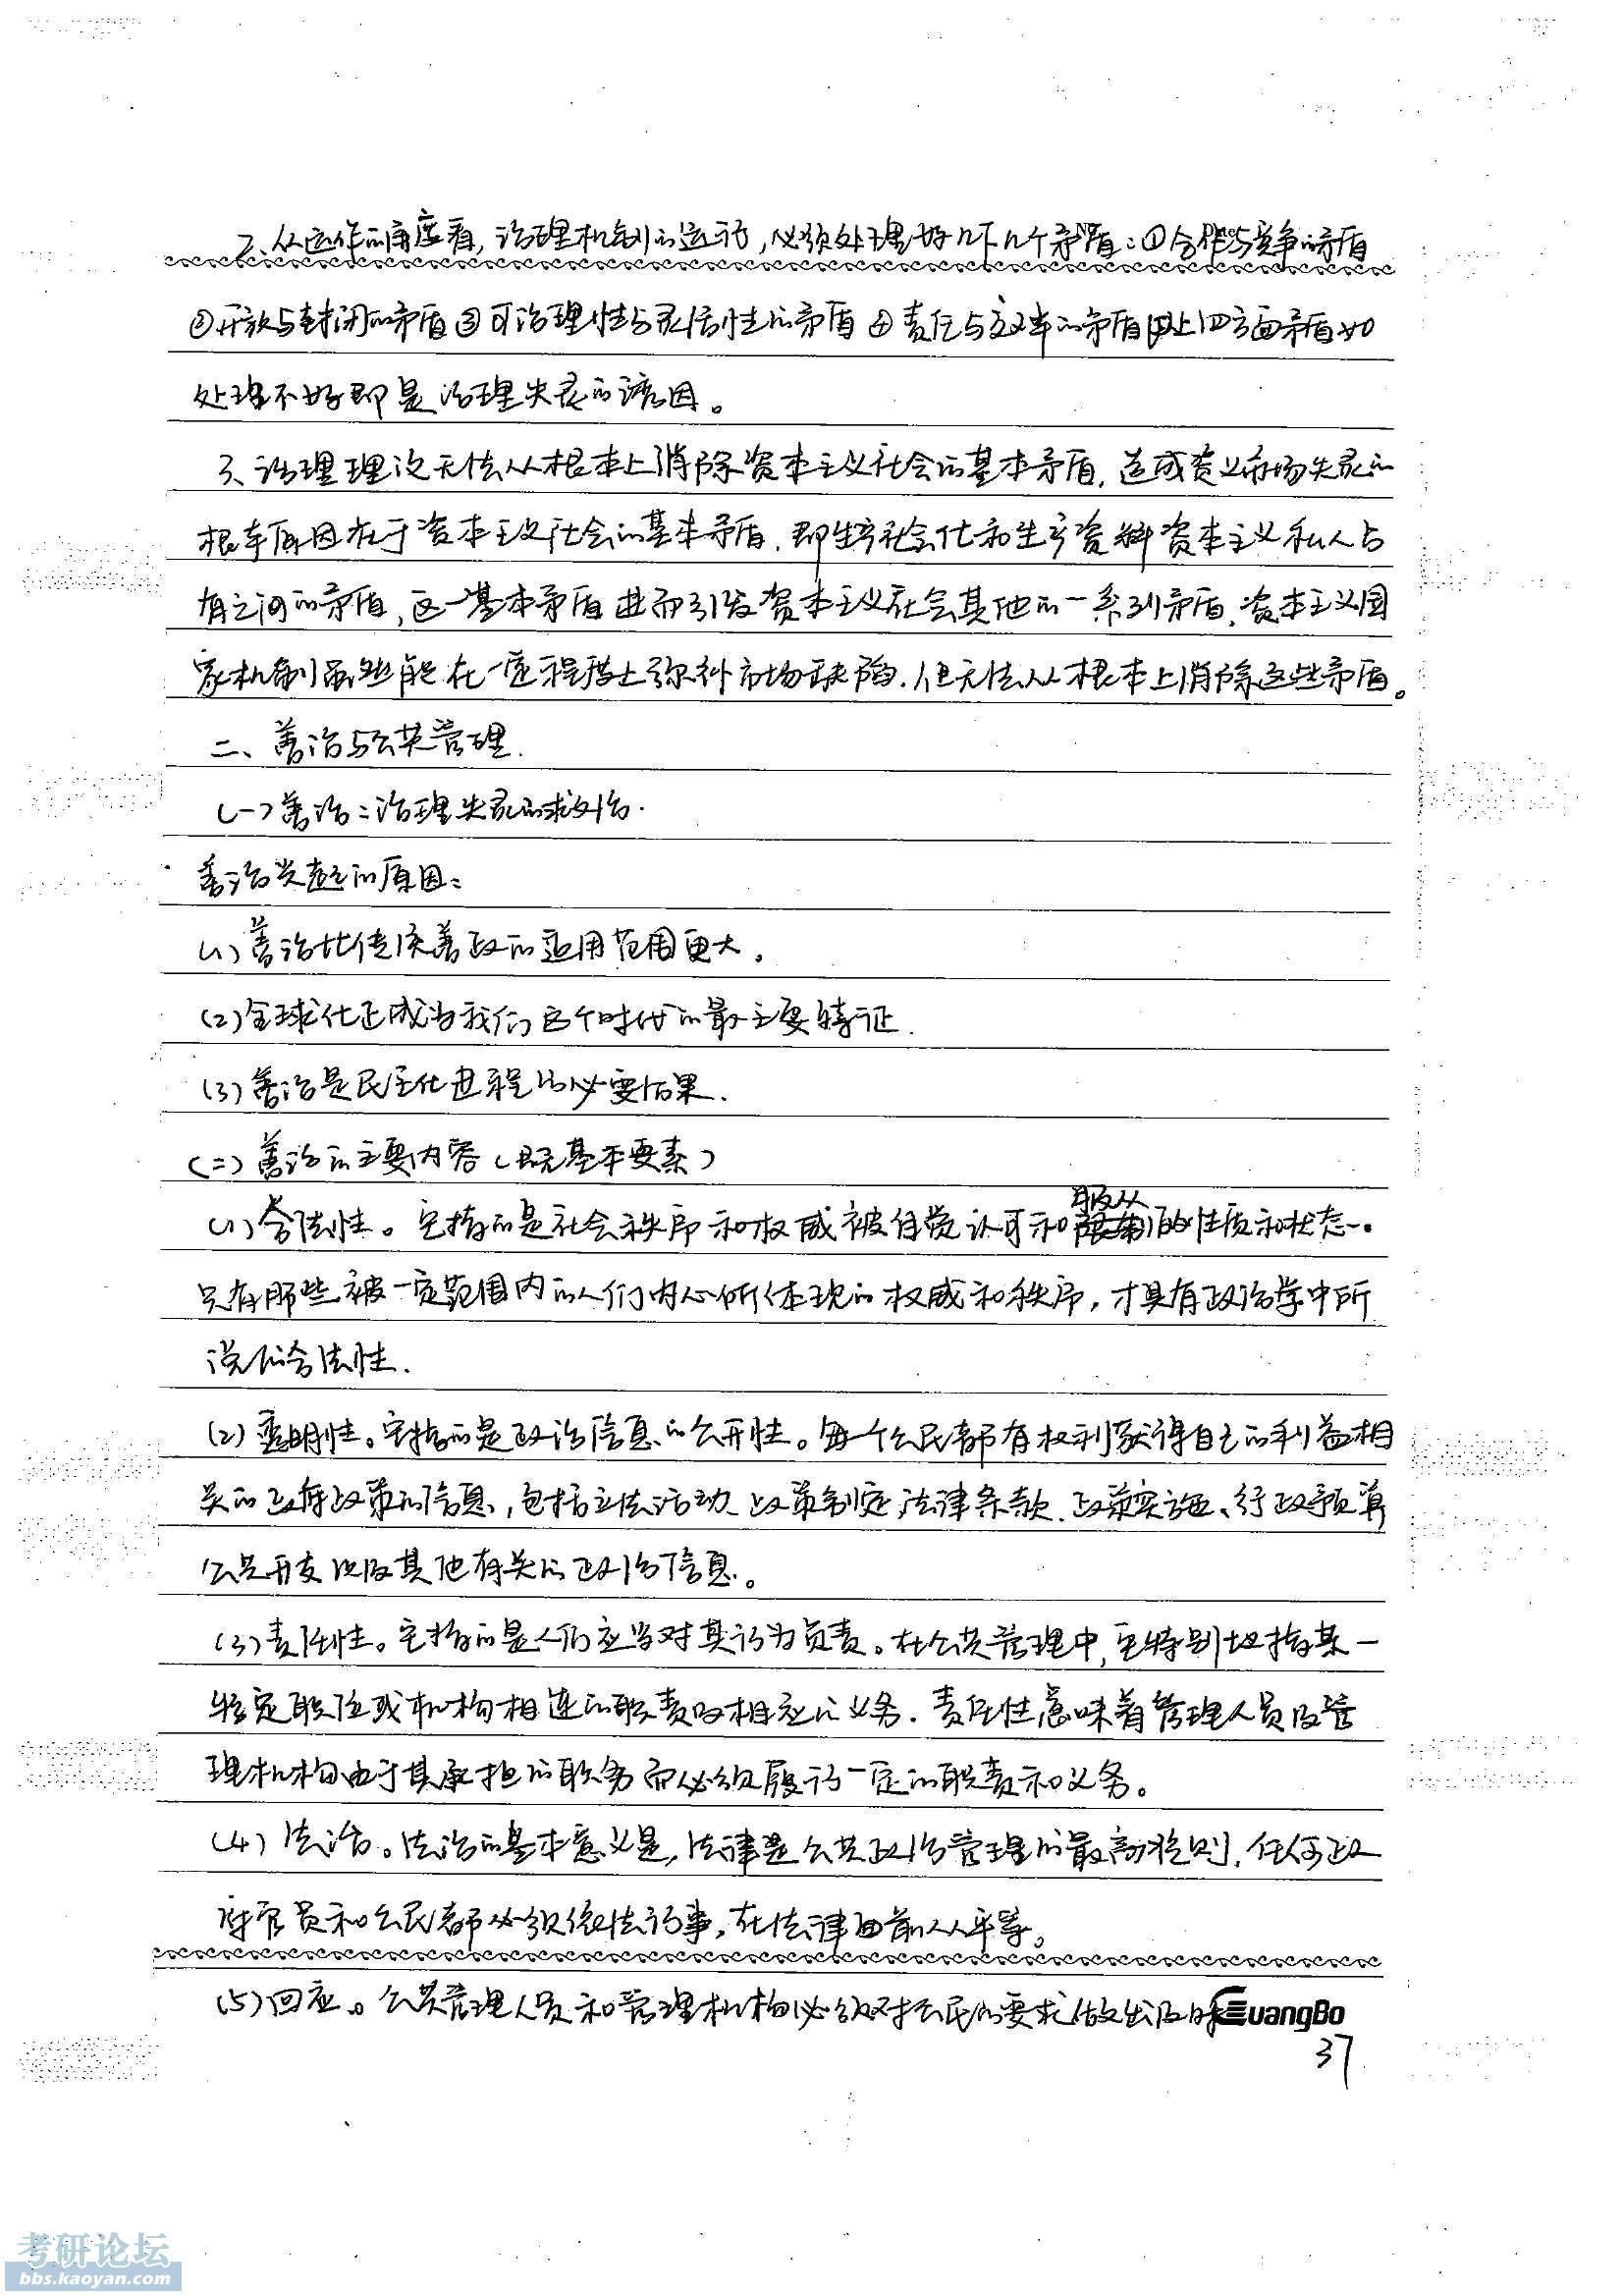 2、从运作的角度看，治理机制的运行，必须处理好几下几个矛盾：①合作与竞争的矛盾
②开放与封闭的矛盾③可治理性与灵活性的矛盾④责任与效率的矛盾以上四方面矛盾如
处理不好即是治理失灵的诱因。
3、治理理论无法从根本上消除资本主义社会的基本矛盾，造成资义市场失灵的
根本原因在于资本主义社会的基本矛盾，即生产社会化和生产资料资本主义私人占
有之间的矛盾，这一基本矛盾进而引发资本主义社会其他的一系列矛盾，资本主义国
家机制虽然能在一定程度上弥补市场缺陷，但无法从根本上消除这些矛盾。
二、善治与公共管理.
(一)善治：治理失灵的救治.
善治兴起的原因：
(1)善治比传统善政的适用范围更大。
(2)全球化正成为我们这个时代的最主要特征.
(3)善治是民主化进程的必要后果.
(二)善治的主要内容(既基本要素)
(1)合法性。它指的是社会秩序和权威被自觉认可和服从的性质和状态。
只有那些被一定范围内的人们内心所体现的权威和秩序，才具有政治学中所
说的合法性.
(2)透明性。它指的是政治信息的公开性。每一个公民都有权利获得自己的利益相
关的政府政策的信息，包括立法活动、政策制定、法律条款、政策实施、行政预算
公共开支以及其他有关的政治信息。
(3)责任性。它指的是人们应当对其行为负责。在公共管理中，它特别地指某一
特定职位或机构相连的职责及相应的义务.责任性意味着管理人员及管
理机构由于其承担的职务而必须履行一定的职责和义务。
(4)法治。法治的基本意义是，法律是公共政治管理的最高准则，任何政
府官员和公民都必须依法行事，在法律面前人人平等。
(5)回应。公共管理人员和管理机构必须对公民的要求做出及时
GuangBo
37
考研论坛
bbs.kaoyan.com